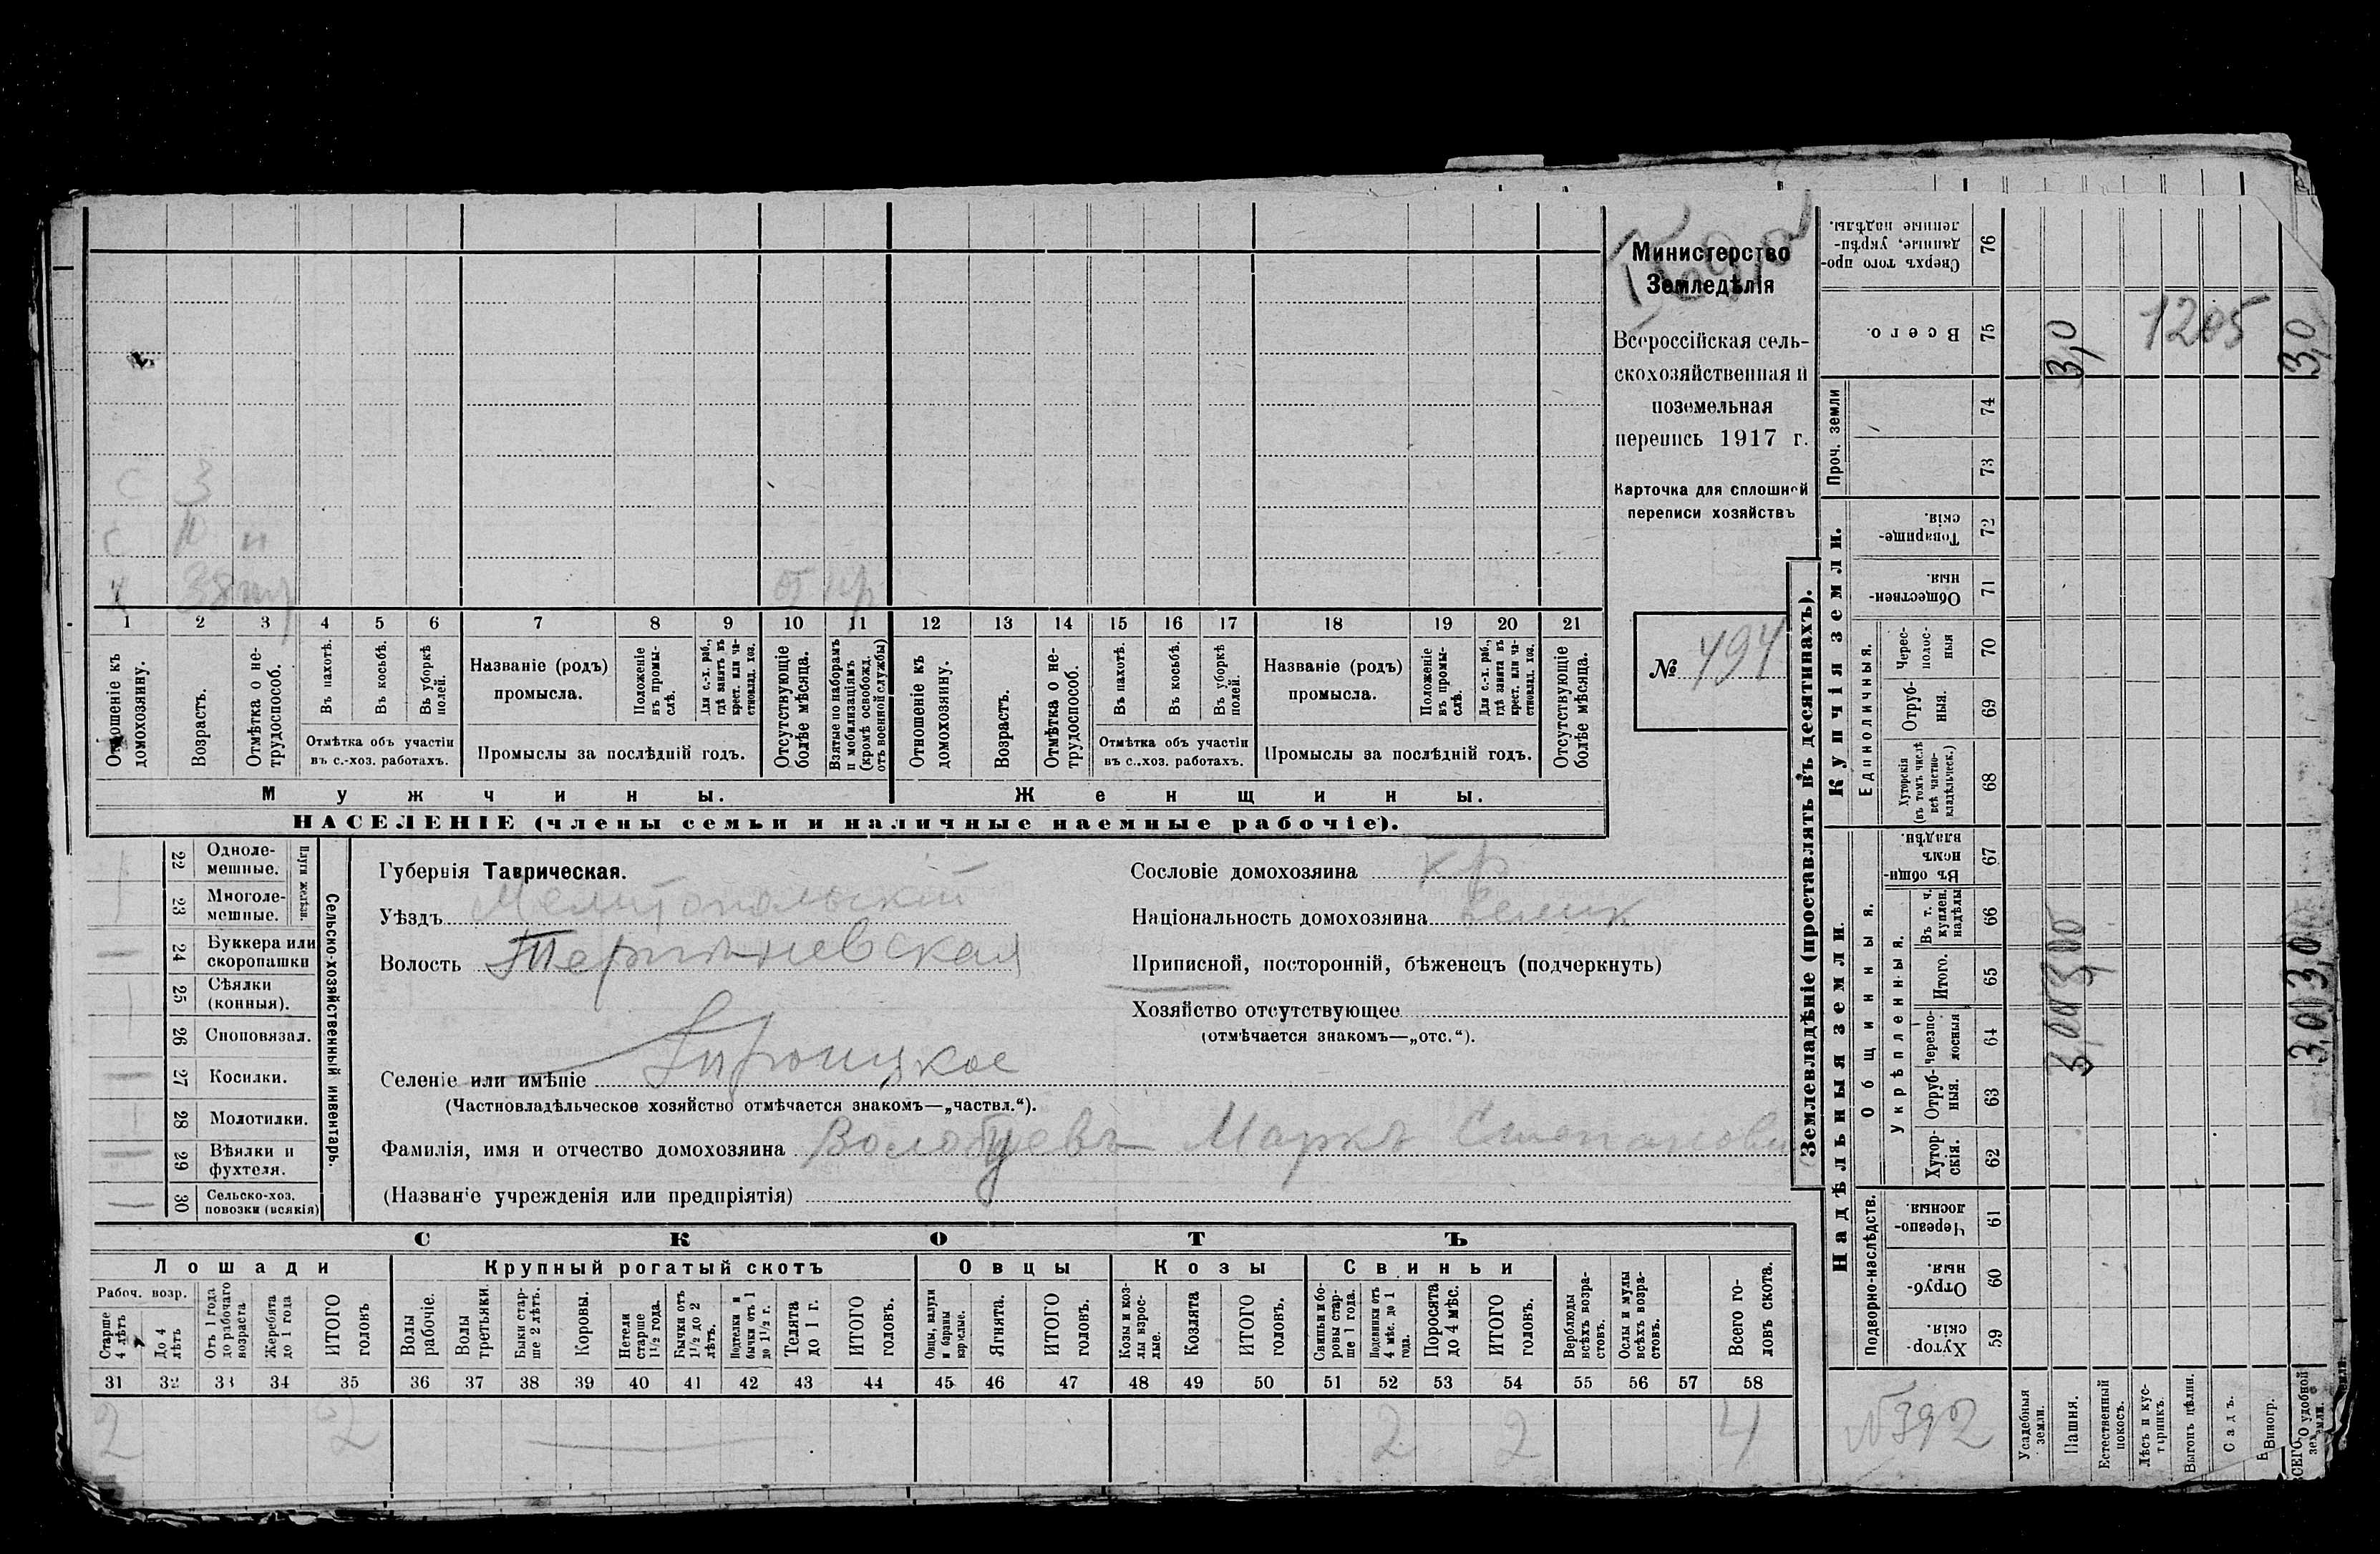 Министерство
Земледѣлія
Всероссійская сель-
скохозяйственная и
поземельная
перепись 1917 г.
Карточка для сплошной
переписи хозяйствъ
№ 494
С 3
С 10 н
Х 38
1 2 3 4 5 6 7 8 9 10 11 12 13 14 15 16 17 18 19 20 21
Отношеніе къ домохозяину.
Возрастъ.
Отмѣтка о не-трудоспособ.
Въ пахотѣ.
Въ косьбѣ.
Въ уборкѣ полей.
Отмѣтка объ участіи
въ с.-хоз. работахъ.
Названіе (родъ)
промысла.
Положеніе въ промы-слѣ.
Для с.-х. раб., гдѣ занятъ въ крест. или ча-стновлад. хоз.
Промыслы за послѣдній годъ.
Отсутствующіе болѣе мѣсяца.
Взятые по наборамъ и мобилизаціямъ (кромѣ освобожд. отъ военной службы)
Отношеніе къ домохозяину.
Возрастъ.
Отмѣтка о не-трудоспособ.
Въ пахотѣ.
Въ косьбѣ.
Въ уборкѣ полей.
Отмѣтка объ участіи
въ с.-хоз. работахъ.
Названіе (родъ)
промысла.
Положеніе въ промы-слѣ.
Для с.-х. раб., гдѣ занята въ крест. или ча-стновлад. хоз.
Промыслы за послѣдній годъ.
Отсутствующіе болѣе мѣсяца.
Мужчины. Женщины.
НАСЕЛЕНІЕ (члены семьи и наличные наемные рабочіе).
Сельско-хозяйственный инвентарь.
Плуги желѣзн.
22 Одноле-мешные.
23 Многоле-мешные.
24 Буккера или скоропашки
25 Сѣялки (конныя).
26 Сноповязал.
27 Косилки.
28 Молотилки.
29 Вѣялки и фухтеля.
30 Сельско-хоз. повозки (всякія)
Губернія Таврическая.
Уѣздъ Мелитопольскій
Волость
Селеніе или имѣніе
(Частновладѣльческое хозяйство отмѣчается знакомъ—„частвл.“).
Фамилія, имя и отчество домохозяина Волобуевъ Маркъ Степанови
(Названіе учрежденія или предпріятія)
Сословіе домохозяина кр
Національность домохозяина велик
Приписной, посторонній, бѣженецъ (подчеркнуть)
Хозяйство отсутствующее
(отмѣчается знакомъ—„отс.“).
СКОТЪ
Лошади Крупный рогатый скотъ Овцы Козы Свиньи
Рабоч. возр.
Старше 4 лѣтъ
До 4 лѣтъ
Отъ 1 года до рабочаго возраста
Жеребята до 1 года
ИТОГО головъ
Волы рабочіе.
Волы третьяки.
Быки стар-ше 2 лѣтъ.
Коровы.
Нетели старше 1½ года.
Бычки отъ 1½ до 2 лѣтъ.
Подтелки и бычки отъ 1 до 1½ г.
Телята до 1 г.
ИТОГО головъ.
Овцы, валухи и бараны взрослые.
Ягнята.
ИТОГО головъ.
Козы и коз-лы взрос-лые.
Козлята
ИТОГО головъ.
Свиньи и бо-ровы стар-ше 1 года.
Подсвинки отъ 4 мѣс. до 1 года.
Поросята до 4 мѣс.
ИТОГО головъ.
Верблюды всѣхъ возра-стовъ.
Ослы и мулы всѣхъ возра-стовъ.
Всего го-ловъ скота.
31 32 33 34 35 36 37 38 39 40 41 42 43 44 45 46 47 48 49 50 51 52 53 54 55 56 57 58
2 2 2 2 4
Землевладѣніе (проставлять въ десятинахъ).
Надѣльныя земли. Купчія земли. Проч. земли
Подворно-наслѣдств. Общинныя. Единоличныя.
Укрѣпленныя.
59 Хутор-скія.
60 Отруб-ныя.
61 Черезпо-лосныя.
62 Хутор-скія.
63 Отруб-ныя.
64 Черезпо-лосныя
65 Итого.
66 Въ т. ч. куплен. надѣлы
67 Въ общи-номъ владѣн.
68 Хуторскія (въ томъ числѣ всѣ частно-владѣльческ.)
69 Отруб-ныя.
70 Черес-полос-ныя
71 Обществен-ныя.
72 Товарище-скія.
73
74
75 Всего.
76 Сверхъ того про-данные, укрѣп-ленные надѣлы.
№392
Усадебныя земли.
Пашня.
Естественный покосъ.
Лѣсъ и кус-тарникъ.
Выгонъ цѣлин.
Садъ.
Виногр.
ВСЕГО удобной земли.
3,0
1205
3,0